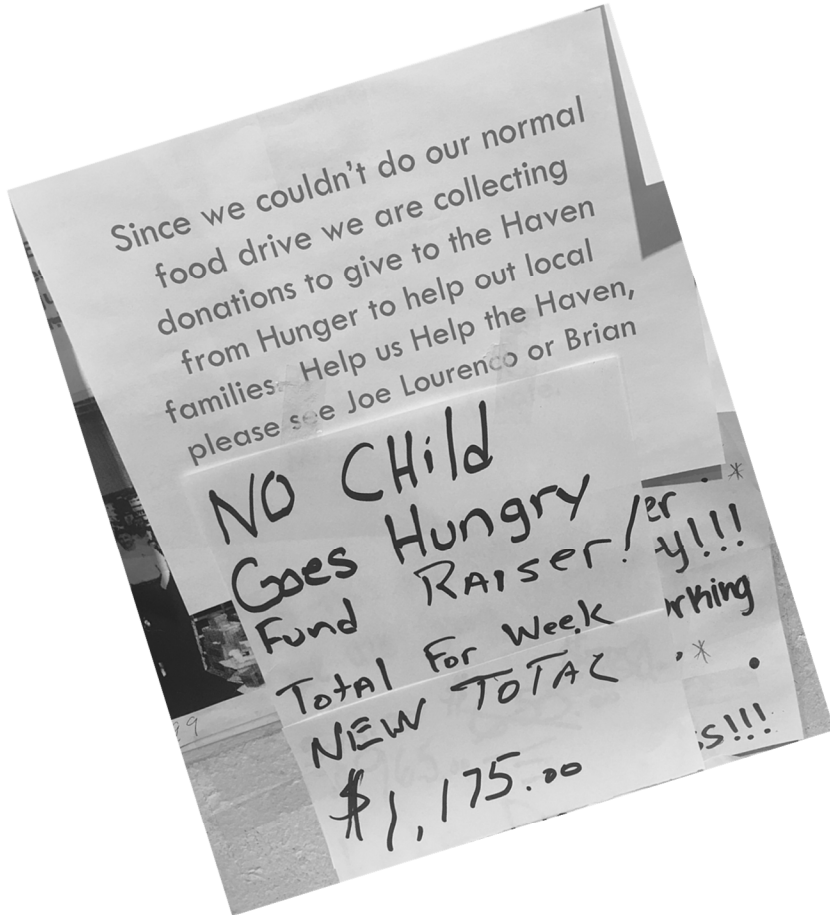 Since we couldn't do our normal
food drive we are collecting
donations to give to the Haven
from Hunger to help out local
families. Help us Help the Haven,
please see Joe Lourenco or Brian
NO CHild
Goes Hungry
Fund RAiser!
Total For Week
NEW TOTAL
$1,175.00
er . *
y!!!
rking
. *
s!!!